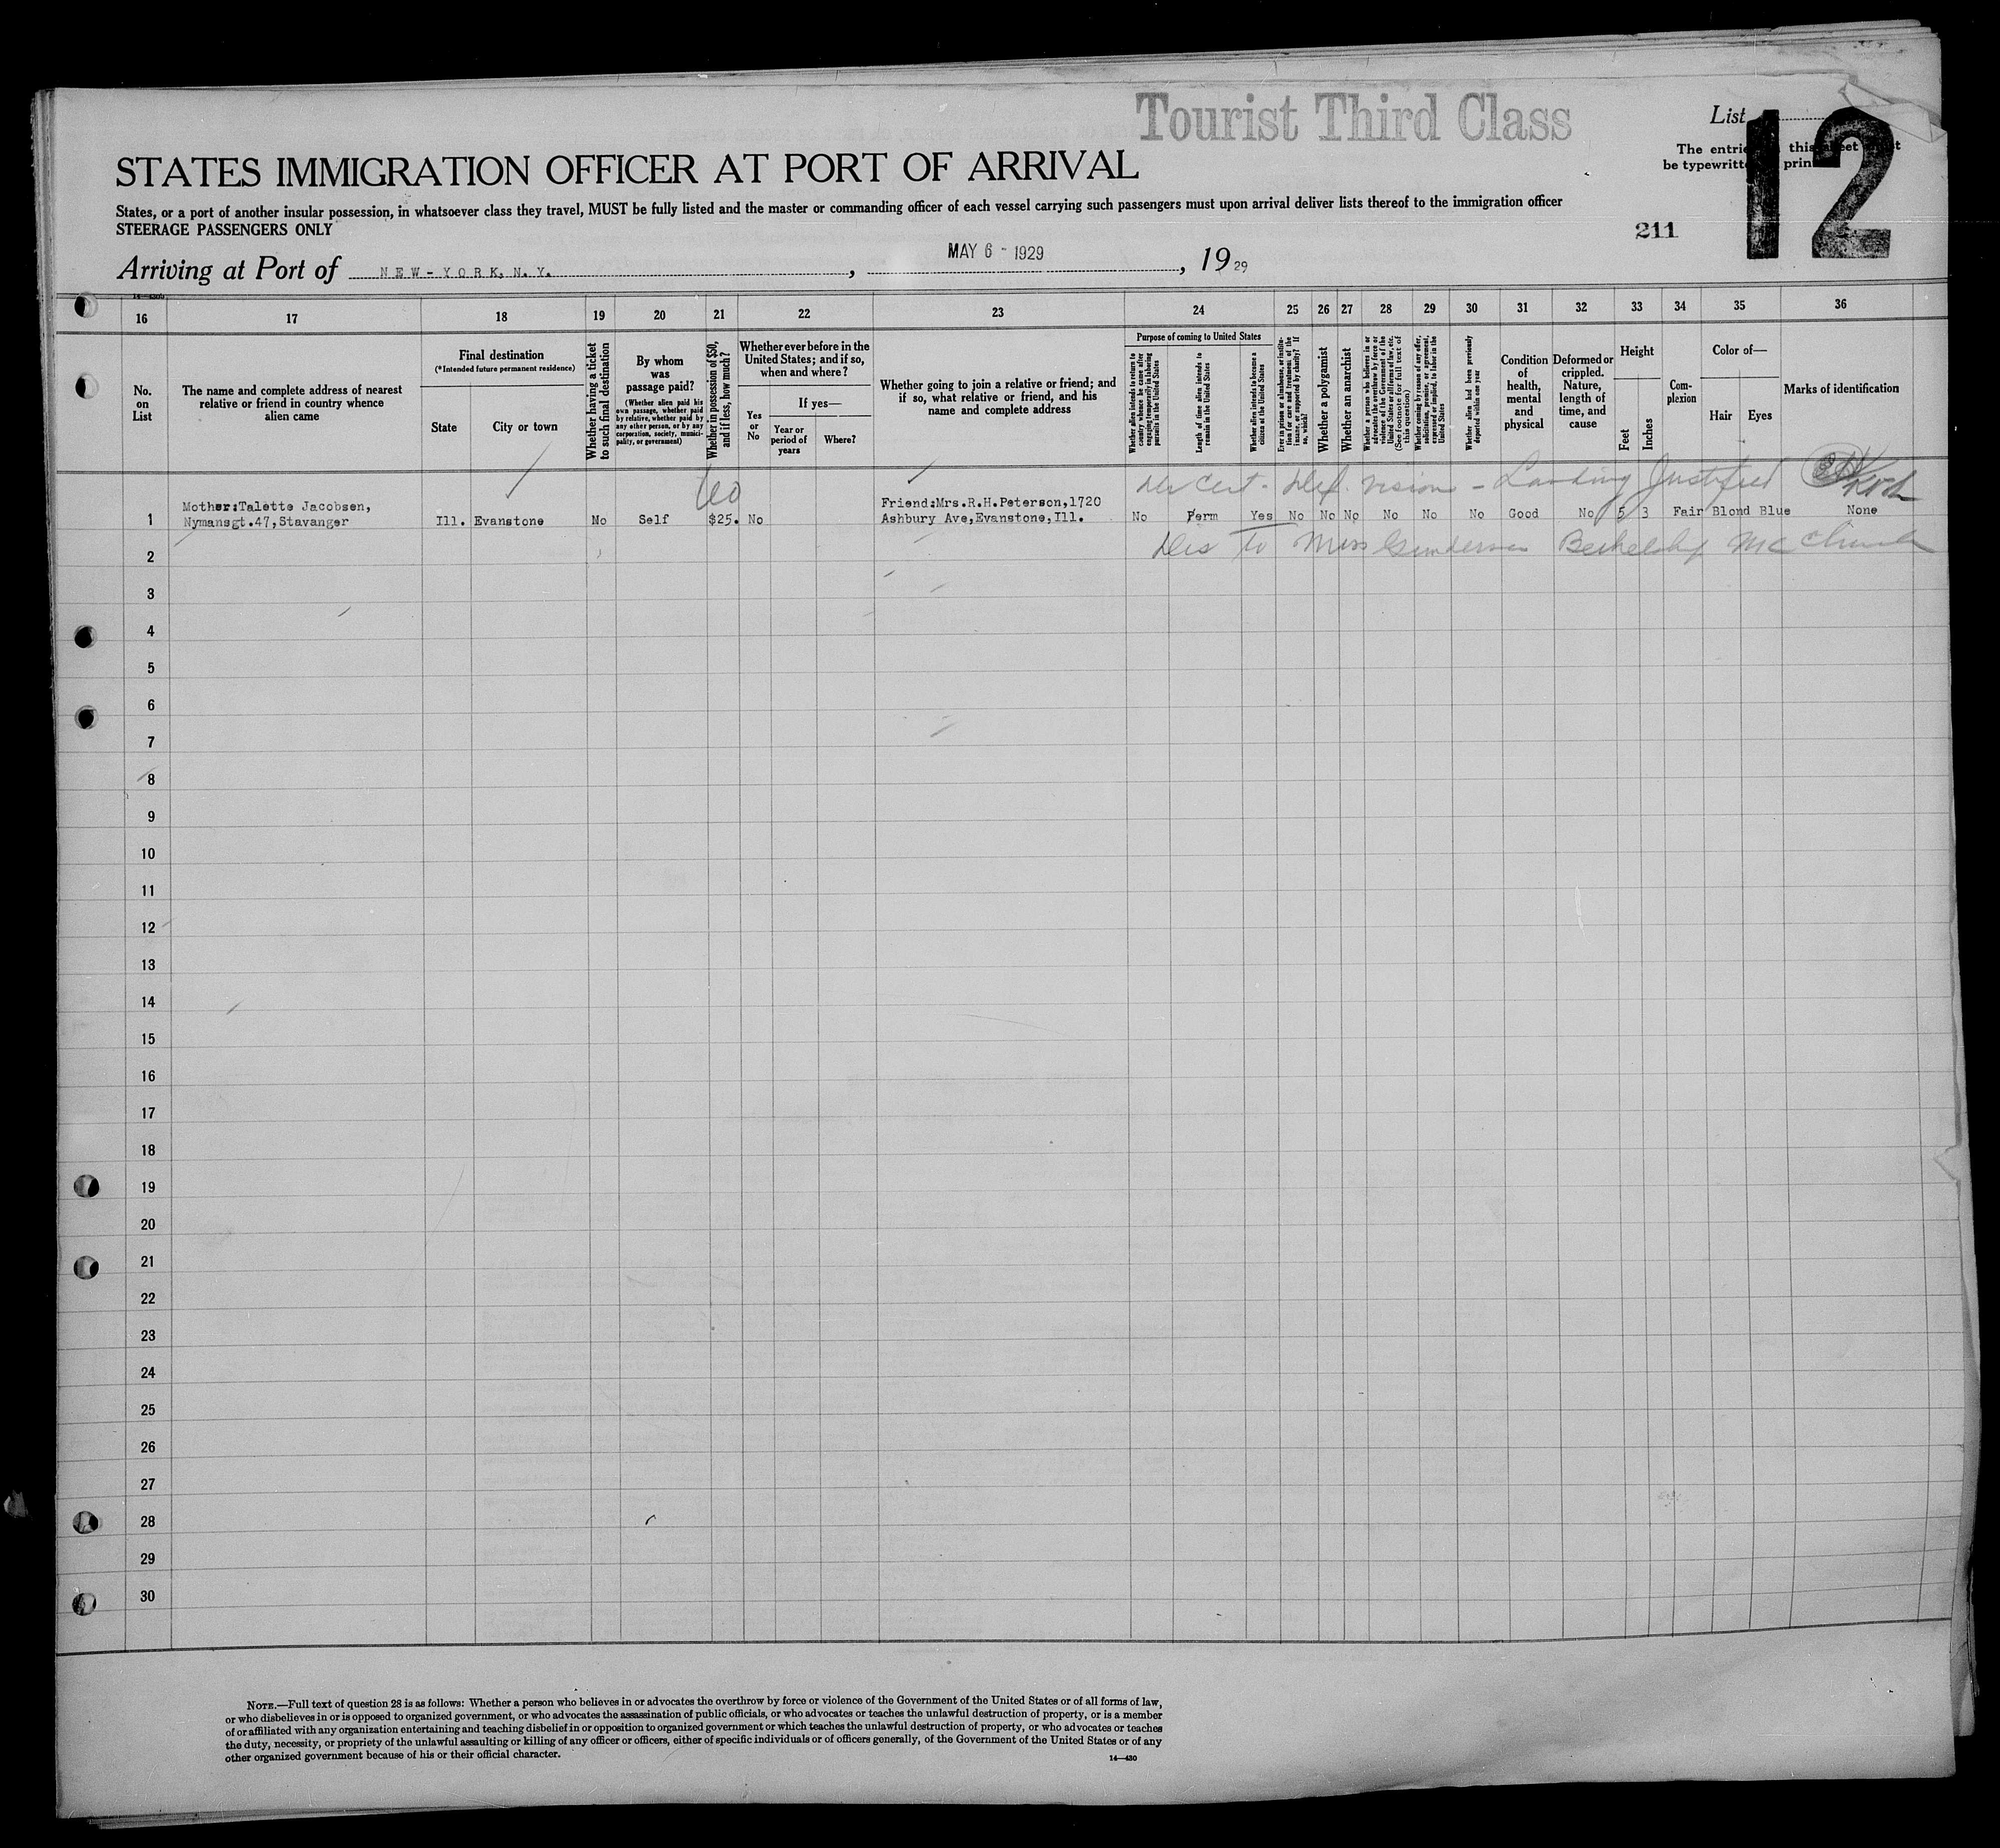 Tourist Third Class
List
12
The entrie this sheet
be typewritte prin
STATES IMMIGRATION OFFICER AT PORT OF ARRIVAL
States, or a port of another insular possession, in whatsoever class they travel, MUST be fully listed and the master or commanding officer of each vessel carrying such passengers must upon arrival deliver lists thereof to the immigration officer
STEERAGE PASSENGERS ONLY
211
Arriving at Port of NEW-YORK, N.Y. , MAY 6 - 1929 , 19 29
16 17 18 19 20 21 22 23 24 25 26 27 28 29 30 31 32 33 34 35 36
No. on List
The name and complete address of nearest relative or friend in country whence alien came
Final destination
(*Intended future permanent residence)
State
City or town
Whether having a ticket to such final destination
By whom was passage paid?
(Whether alien paid his own passage, whether paid by relative, whether paid by any other person, or by any corporation, society, municipality, or government)
Whether in possession of $50, and if less, how much?
Whether ever before in the United States; and if so, when and where?
Yes or No
If yes—
Year or period of years
Where?
Whether going to join a relative or friend; and if so, what relative or friend, and his name and complete address
Purpose of coming to United States
Whether alien intends to return to country whence he came after engaging temporarily in laboring pursuits in the United States
Length of time alien intends to remain in the United States
Whether alien intends to become a citizen of the United States
Ever in prison or almshouse, or institution for care and treatment of the insane, or supported by charity? If so, which?
Whether a polygamist
Whether an anarchist
Whether a person who believes in or advocates the overthrow by force or violence of the Government of the United States or all forms of law, etc. (See footnote for full text of this question)
Whether coming by reason of any offer, solicitation, promise, or agreement, expressed or implied, to labor in the United States
Whether alien had been previously deported within one year
Condition of health, mental and physical
Deformed or crippled. Nature, length of time, and cause
Height
Feet
Inches
Complexion
Color of—
Hair
Eyes
Marks of identification
Cert - Def. vision - Landing Justified
Mother:Talette Jacobsen, Friend:Mrs.R.H.Peterson,1720
1 Nymansgt.47,Stavanger Ill. Evanstone No Self $25. No Ashbury Ave,Evanstone,Ill. No Perm Yes No No No No No No Good No 5 3 Fair Blond Blue None
To Miss Gunderson
2
3
4
5
6
7
8
9
10
11
12
13
14
15
16
17
18
19
20
21
22
23
24
25
26
27
28
29
30
NOTE.—Full text of question 28 is as follows: Whether a person who believes in or advocates the overthrow by force or violence of the Government of the United States or of all forms of law,
or who disbelieves in or is opposed to organized government, or who advocates the assassination of public officials, or who advocates or teaches the unlawful destruction of property, or is a member
of or affiliated with any organization entertaining and teaching disbelief in or opposition to organized government or which teaches the unlawful destruction of property, or who advocates or teaches
the duty, necessity, or propriety of the unlawful assaulting or killing of any officer or officers, either of specific individuals or of officers generally, of the Government of the United States or of any
other organized government because of his or their official character.
14—430